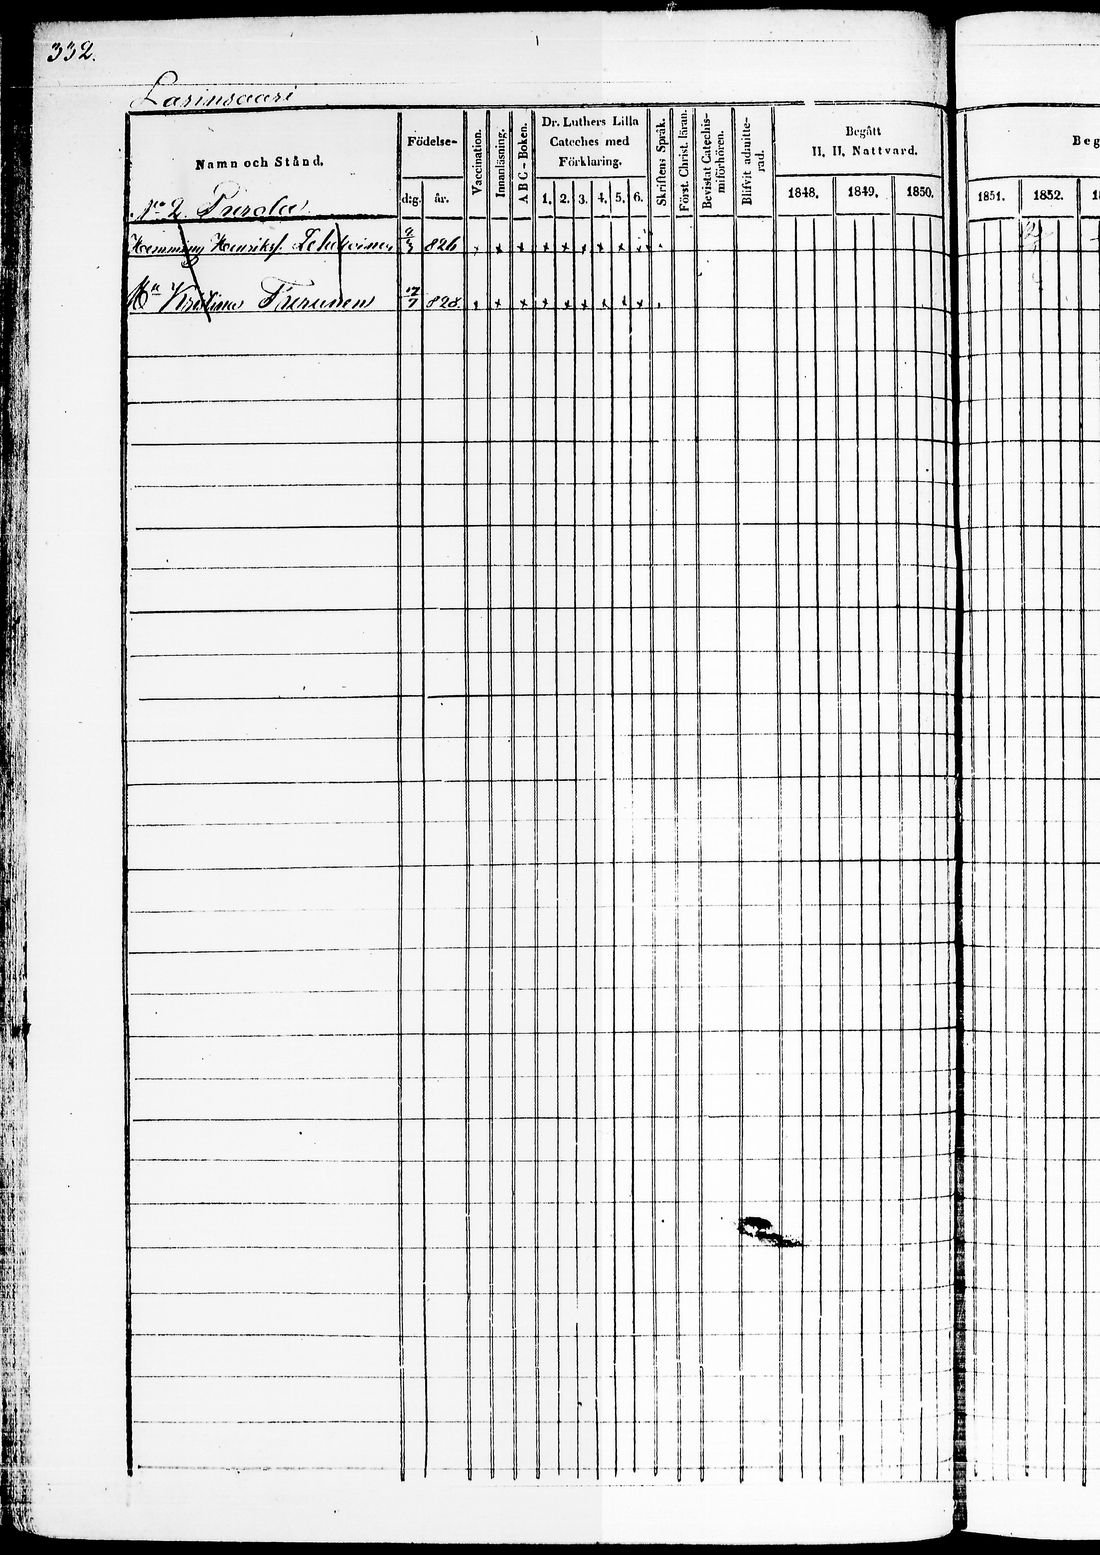 332.
Larinsaari
Namn och Stånd.
Födelse-
dag. år.
Vaccination.
Innanläsning.
A B C - Boken.
Dr. Luthers Lilla
Cateches med
Förklaring.
1. 2. 3. 4. 5. 6.
Skriftens Språk.
Först. Christ. läran.
Bevistat Catechis-
miförhören.
Blifvit admitte-
rad.
Begått
H. H. Nattvard.
1848. 1849. 1850.
Beg
1851. 1852.
No 2. Turola
Hemming Henriks. 826 x x x x x x x x x
Hu Kristina Turunen 17/7 828 x x x x x x x x x